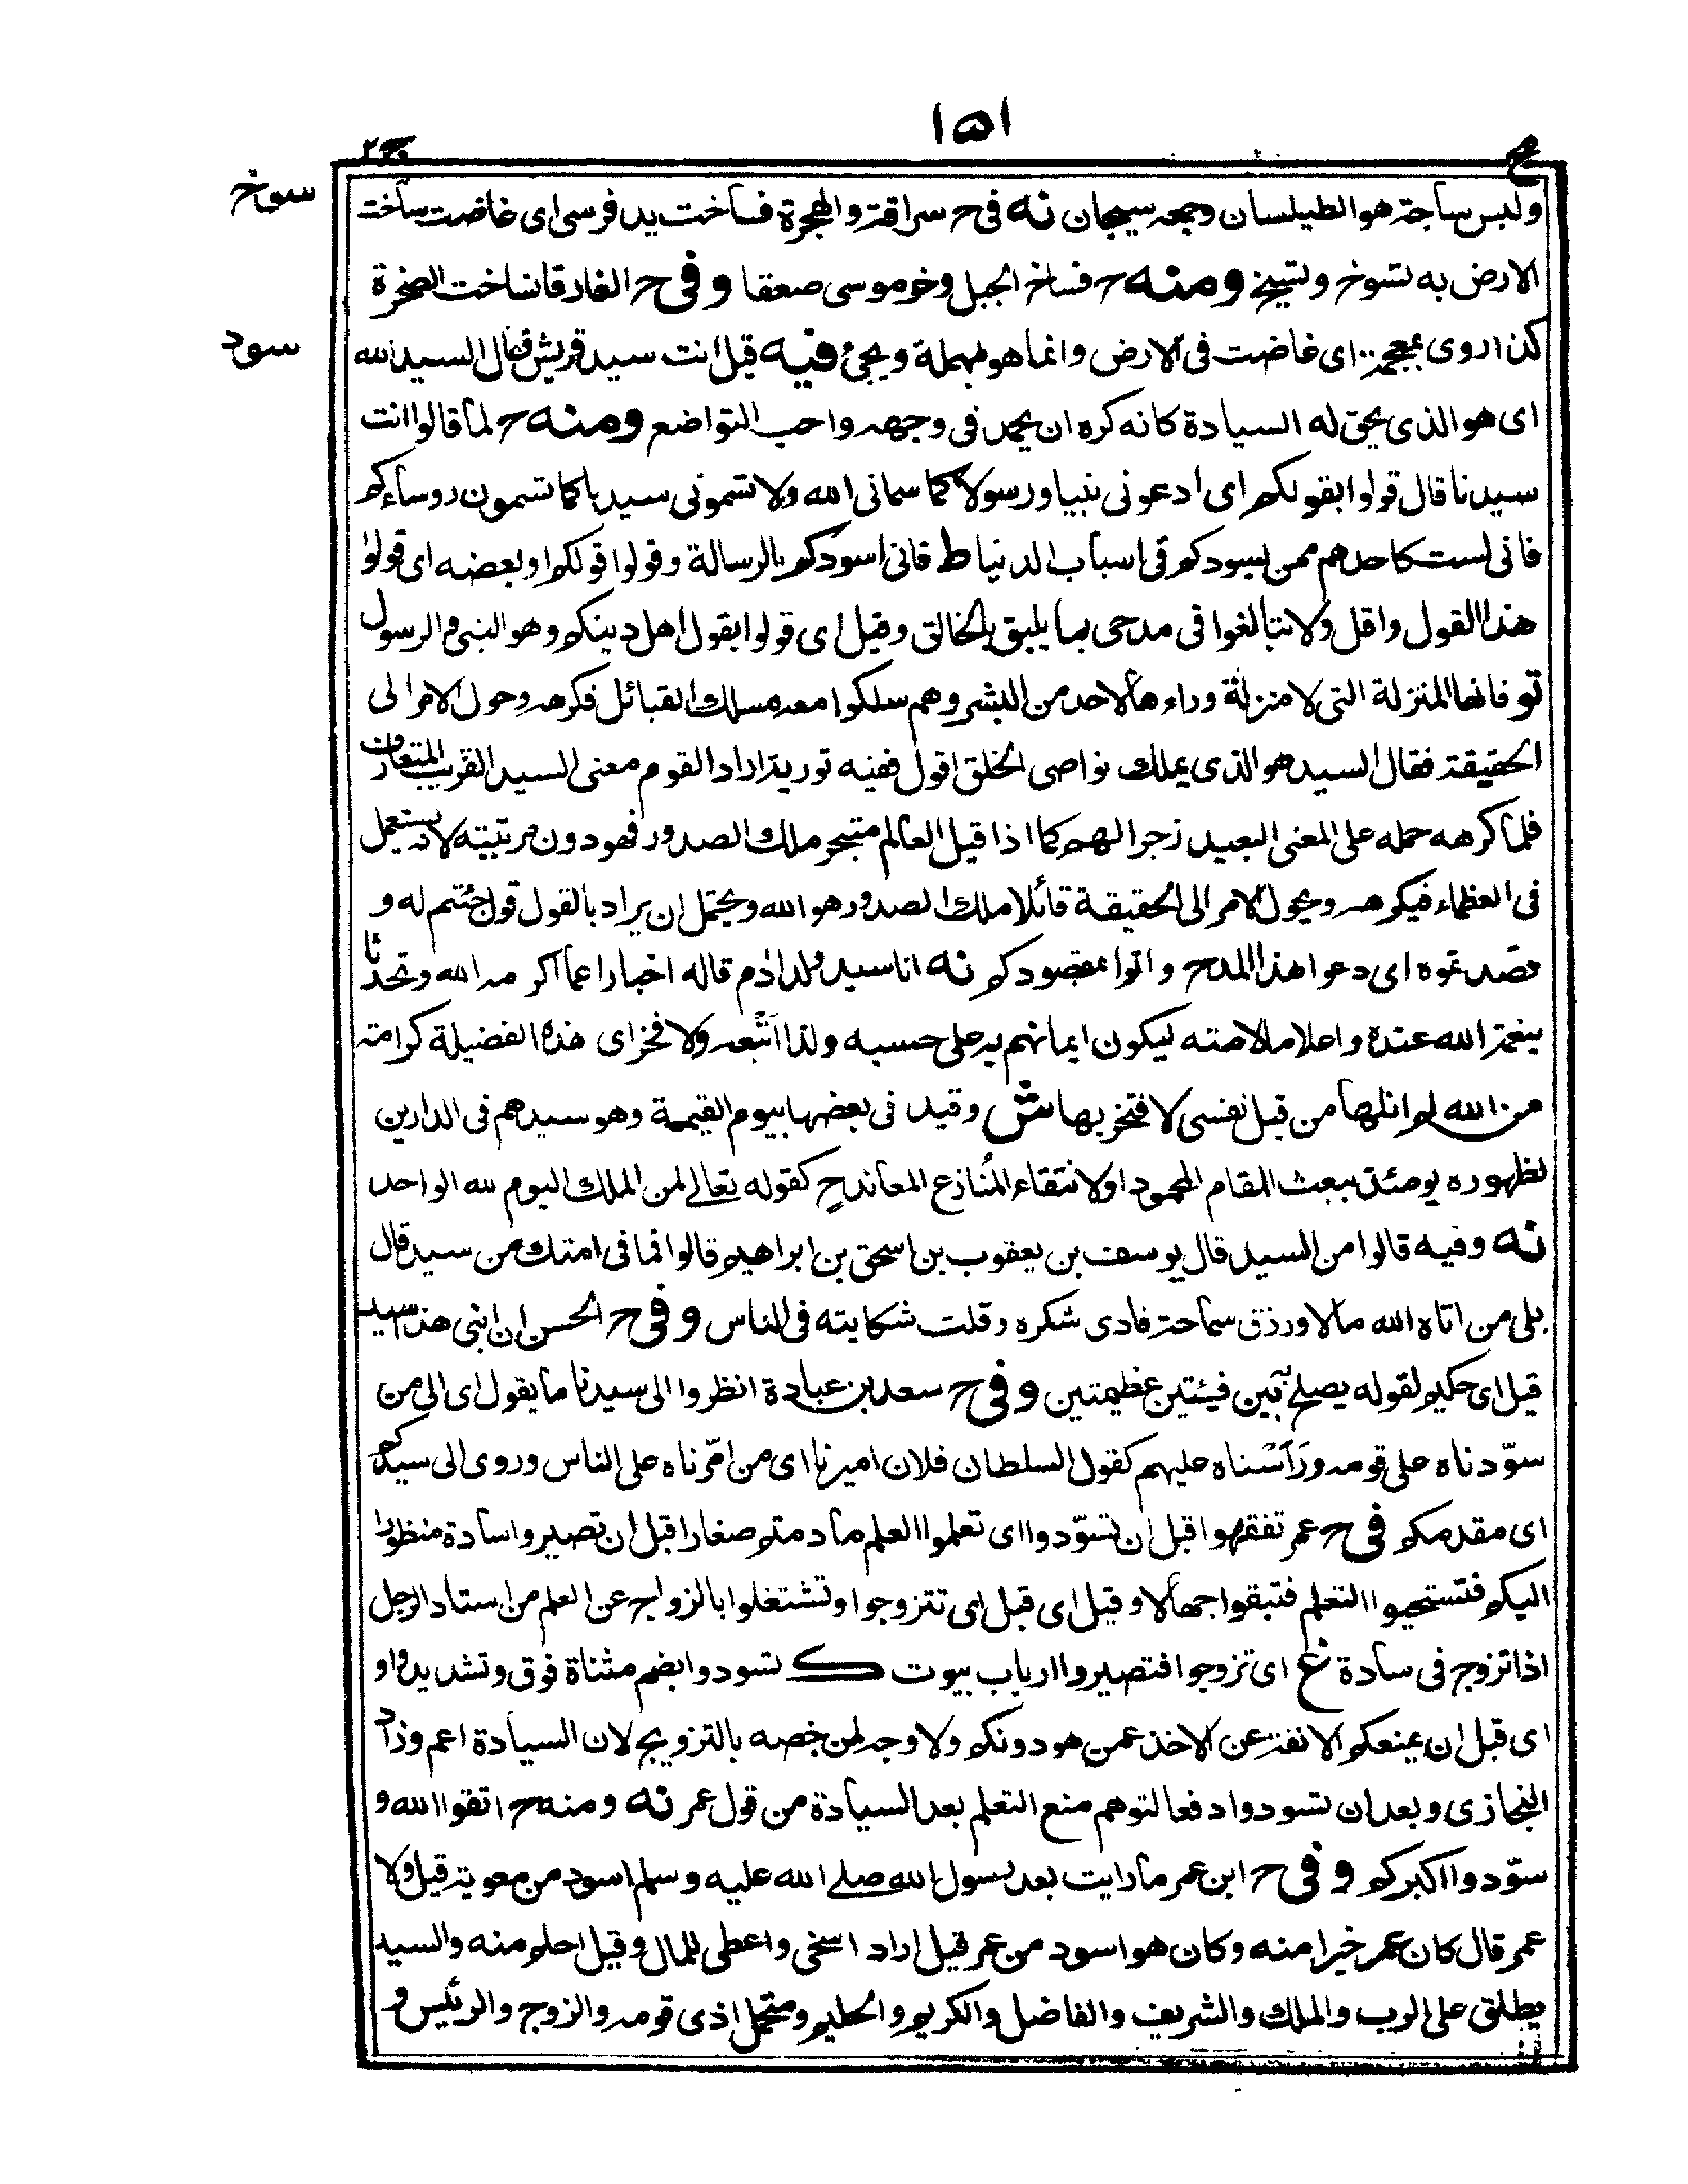 ١٥١
مج
ج٢
سوخ
ولبس ساجة هو الطيلسان وجمعه سيجان نه فى ح سراقة والهجرة فساخت يد فرسى اى غاضت ساخت
الارض به تسوخ وتسيخ ومنه ح فساخ الجبل وخر موسى صعقا وفى ح الغار فانساخت الصخرة
سود
كذا روى بمعجمة اى غاضت فى الارض وانما هو بمهملة ويجئ فيه قيل انت سيد قريش فقال السيد الله
اى هو الذى يحق له السيادة كانه كره ان يحمد فى وجهه واحب التواضع ومنه ح لما قالوا انت
سيدنا قال قولوا بقولكم اى ادعونى نبيا ورسولا كما سمانى الله ولا تسمونى سيدا كما تسمون روساءكم
فانى لست كاحدهم ممن يسودكم فى اسباب الدنيا ط فانى اسودكم بالرسالة وقولوا قولكم او بعضه اى قولوا
هذا القول واقل ولا تبالغوا فى مدحى بما يليق بالخالق وقيل اى قولوا بقول اهل دينكم وهو النبى والرسول
تو فانها المنزلة التى لا منزلة وراءها لاحد من البشر وهم سلكوا معه مسلك القبائل فكرهه وحول الامر الى
الحقيقة فقال السيد هو الذى يملك نواصى الخلق اقول ففيه تورية اراد القوم معنى السيد القريب المتعارف
فلما كرهه حمله على المعنى البعيد زجرا لهم كما اذا قيل العالم متبحر ملك الصدور فهو دون مرتبته لانه يستعمل
فى العظماء فيكرهه ويحول الامر الى الحقيقة قائلا ملك الصدور هو الله ويحتمل ان يراد بالقول قول جئتم له و
قصدتموه اى دعوا هذا المدح واتوا بمقصودكم نه انا سيد ولد ادم قاله اخبارا عما اكرمه الله وتحدثا
بنعمة الله عنده واعلاما لامته ليكون ايمانهم به على حسبه ولذا اتبعه ولا فخر اى هذه الفضيلة كرامة
من الله لم انلها من قبل نفسى لافتخر بها ش وقيد فى بعضها بيوم القيمة وهو سيدهم فى الدارين
لظهوره يومئذ ببعث المقام المحمود او لانتقاء المنازع المعاند ح كقوله تعالى لمن الملك اليوم لله الواحد
نه وفيه قالوا من السيد قال يوسف بن يعقوب بن اسحق بن ابراهيم قالوا فما فى امتك من سيد قال
بلى من اتاه الله مالا ورزق سماحة فادى شكره وقلت شكايته فى الناس وفى ح الحسن ان ابنى هذا سيد
قيل اى حكيم لقوله يصلح به بين فيئتين عظيمتين وفى ح سعد بن عبادة انظروا الى سيدنا ما يقول اى الى من
سوّدناه على قومه ورَأَّسْناه عليهم كقول السلطان فلان اميرنا اى من امّرناه على الناس وروى الى سيدكم
اى مقدمكم فى ح عمر تفقهوا قبل ان تسوّدوا اى تعلموا العلم ما دمتم صغارا قبل ان تصيروا سادة منظورا
اليكم فتستحيوا التعلم فتبقوا جهالا وقيل اى قبل اى تتزوجوا وتشتغلوا بالزواج عن العلم من استاد الرجل
اذا تزوج فى سادة غ اى تزوجوا فتصيروا ارباب بيوت ك تسودوا بضم مثناة فوق وتشديد واو
اى قبل ان يمنعكم الانفة عن الاخذ عمن هو دونكم ولا وجه لمن خصه بالتزويج لان السيادة اعم وزاد
البخارى وبعد ان تسودوا دفعا لتوهم منع التعلم بعد السيادة من قول عمر نه ومنه ح اتقوا الله و
سوّدوا اكبركم وفى ح ابن عمر ما رايت بعد رسول الله صلے الله عليه وسلم اسود من معوية قيل ولا
عمر قال كان عمر خيرا منه وكان هو اسود من عمر قيل اراد اسخى واعطى للمال وقيل احلم منه والسيد
يطلق على الرب والملك والشريف والفاضل والكريم والحليم ومتحمل اذى قومه والزوج والرئيس و